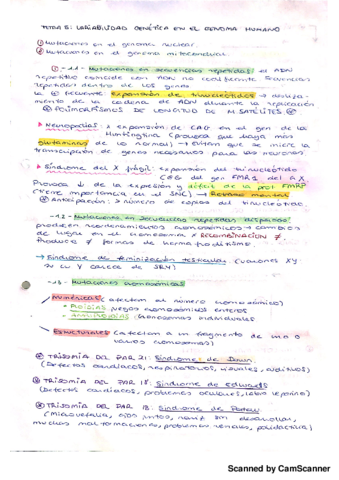 TEMA 5: VARIABILIDAD GENÉTICA EN EL GENOMA HUMANO
① Mutaciones en el genoma nuclear.
② Mutaciones en el genoma mitocondrial.
① -1.1- Mutaciones en secuencias repetidas: el ADN
repetitivo coincide con ADN no codificante. Secuencias
repetidas dentro de los genes
la @ frecuente expansión de trinucleótidos → desliza-
miento de la cadena de ADN durante la replicación
POLIMORFISMOS DE LONGITUD DE MSATÉLITES
Neuropatías: x expansión de CAG en el gen de la
Huntingtina (provoca que haya más
glutaminas de lo normal) → Evitan que se inicie la
transcripción de genes necesarios para las neuronas.
Síndrome del X frágil: expansión del trinucleótido
CAG del gen FMR1 del ♂ X
Provoca ↓ de la expresión y déficit de la prot. FMRP
(tiene importancia en el SNC) → Retraso mental
Anticipación: > número de copias del trinucleótido.
-1.2- Mutaciones en secuencias repetidas dispersas:
producen reordenamientos cromosómicos → cambios
de lugar en el cromosoma x RECOMBINACIÓN ≠
Produce ≠ formas de hermafroditismo.
→ Síndrome de feminización testicular. (varones XY
su Y carece de SRY)
-1.3- Mutaciones cromosómicas
Numéricas: (afectan al número cromosómico)
PLOIDÍAS: juegos cromosómicos enteros
ANEUPLOIDÍAS: cromosomas individuales
Estructurales (afectan a un fragmento de uno o
varios cromosomas)
TRISOMÍA DEL PAR 21: Síndrome de Down.
(Defectos cardíacos, respiratorios, visuales, auditivos)
TRISOMÍA DEL PAR 18: Síndrome de Edwards
(Defectos cardíacos, problemas oculares, labio leporino)
TRISOMÍA DEL PAR 13: Síndrome de Patau.
(Microcefalia, ojos juntos, nariz sin desarrollar,
muchas malformaciones, problemas renales, polidactilia)
Scanned by CamScanner